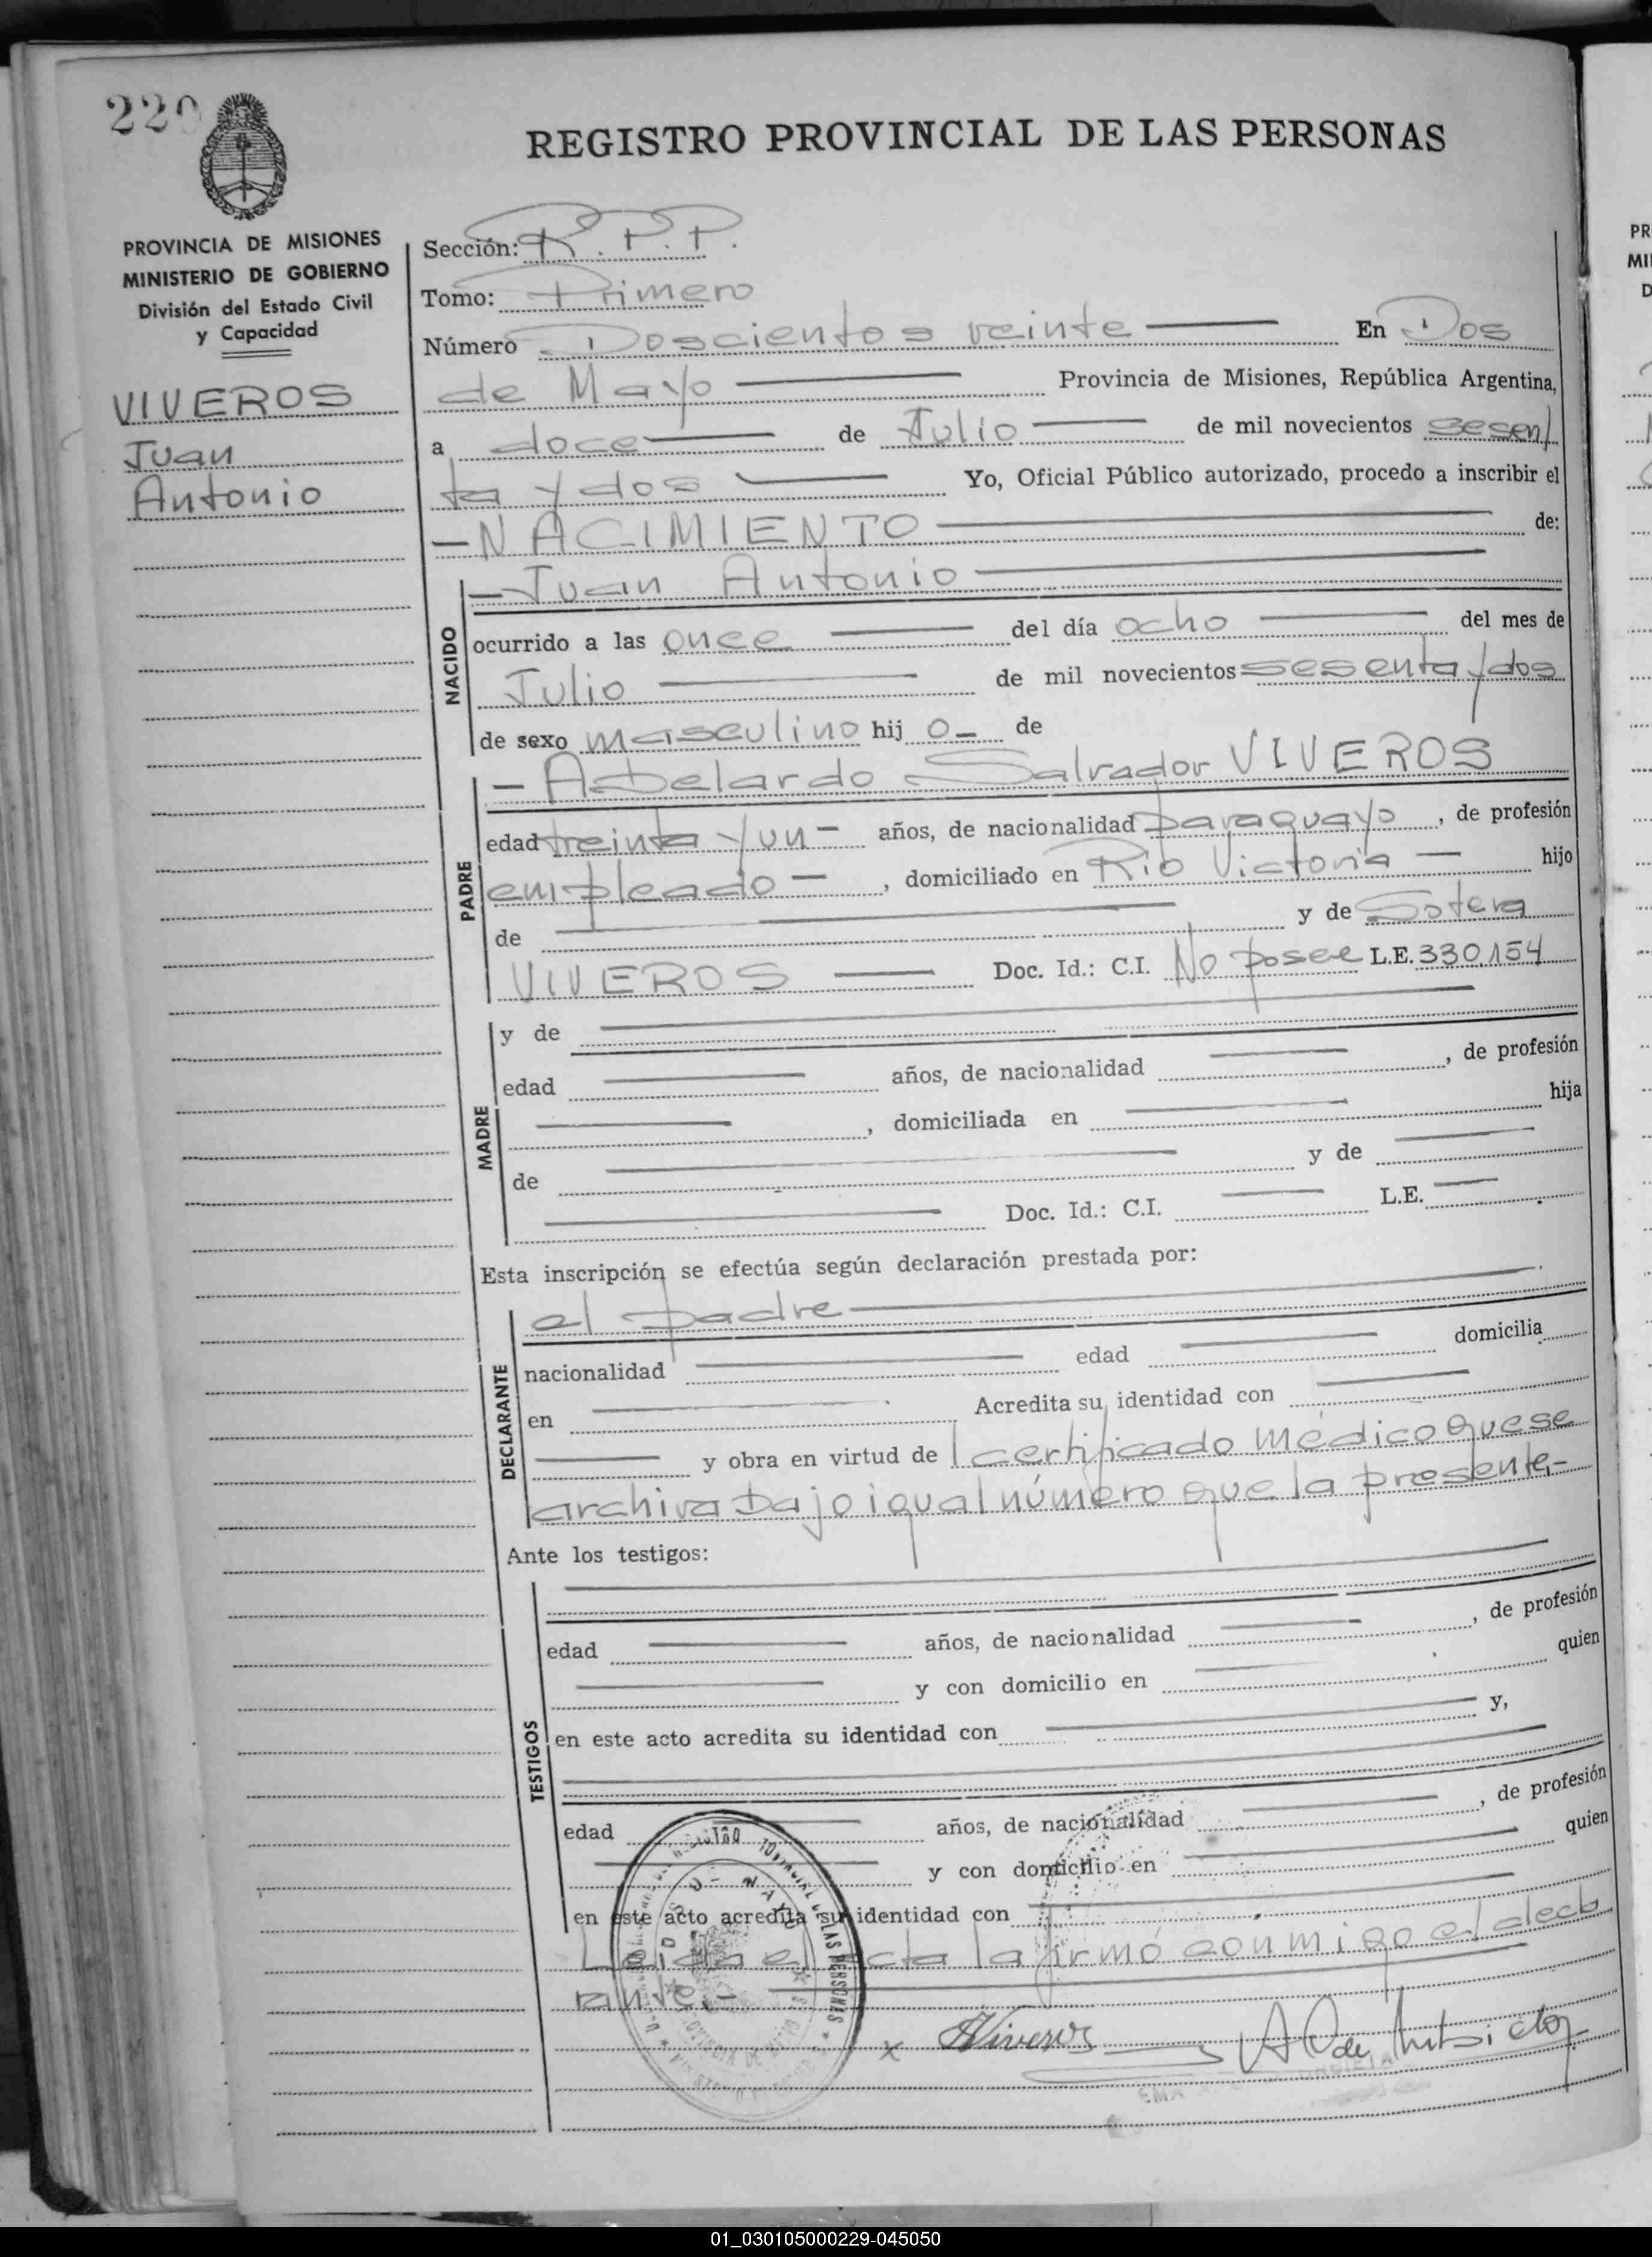 220
REGISTRO PROVINCIAL DE LAS PERSONAS
PROVINCIA DE MISIONES
MINISTERIO DE GOBIERNO
División del Estado Civil
y Capacidad
VIVEROS
Juan
Antonio
Sección: R.P.P.
Tomo: Primero
Número Doscientos veinte En Dos
de Mayo Provincia de Misiones, República Argentina,
a doce de Julio de mil novecientos sesen
ta y dos Yo, Oficial Público autorizado, procedo a inscribir el
—NACIMIENTO de:
NACIDO
—Juan Antonio
ocurrido a las once del día ocho del mes de
Julio de mil novecientos sesenta y dos
de sexo masculino hij o de
PADRE
— Abelardo Salvador VIVEROS
edad treinta y un — años, de nacionalidad paraguayo, de profesión
empleado —, domiciliado en Río Victoria — hijo
de y de Sotera
VIVEROS Doc. Id.: C.I. No posee L.E. 330.154
MADRE
y de
edad años, de nacionalidad , de profesión
, domiciliada en hija
de y de
Doc. Id.: C.I. L.E.
Esta inscripción se efectúa según declaración prestada por:
DECLARANTE
el padre
nacionalidad edad domicilia
en Acredita su identidad con
y obra en virtud de certificado médico que se
archiva bajo igual número que la presente.-
Ante los testigos:
TESTIGOS
edad años, de nacionalidad , de profesión
y con domicilio en quien
en este acto acredita su identidad con y,
edad años, de nacionalidad , de profesión
y con domicilio en quien
en este acto acredita su identidad con
Leída el acta la firmó conmigo el decla
rante.-
x AViveros
LAS PERSONAS
01_030105000229-045050
PR
MI
D